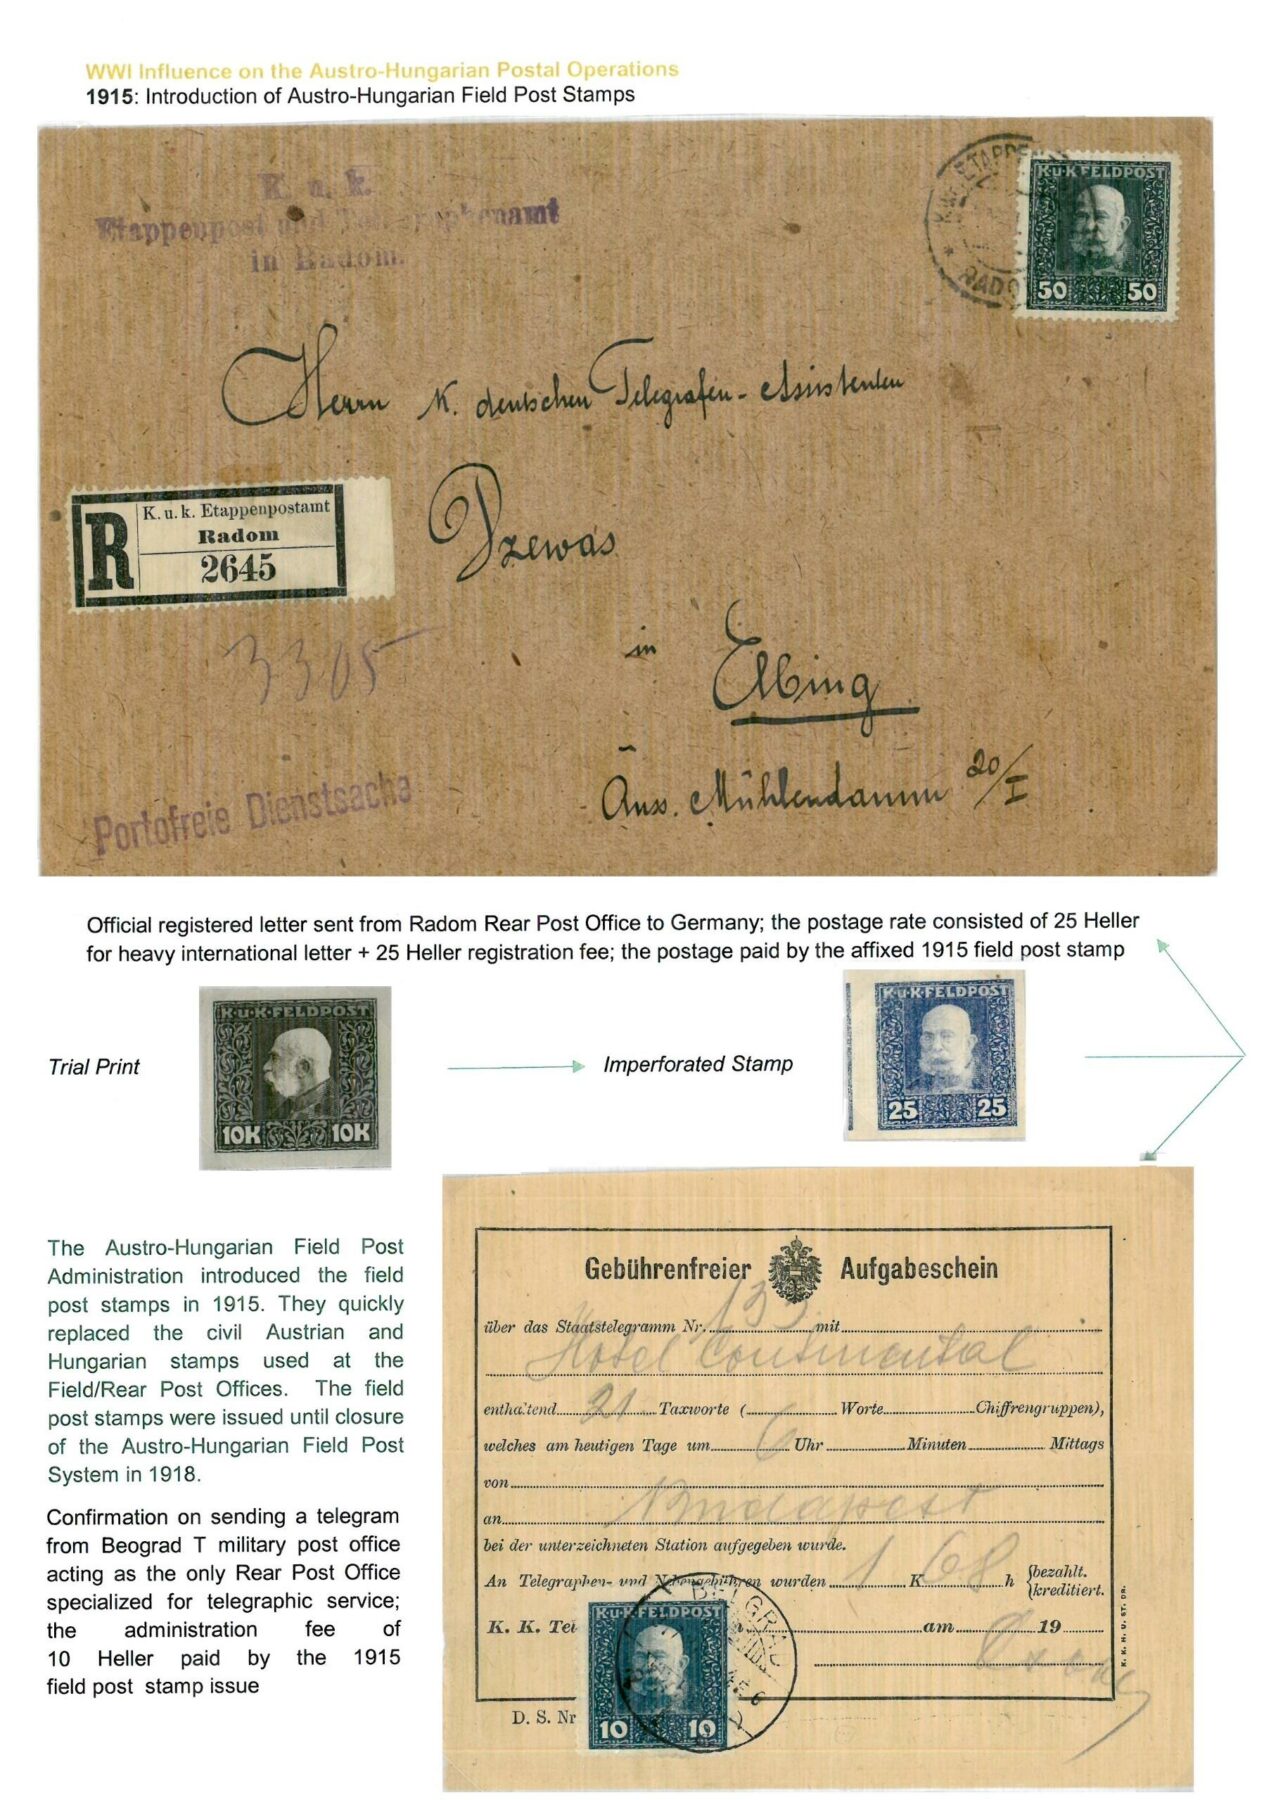 WWI Influence on the Austro-Hungarian Postal Operations
1915: Introduction of Austro-Hungarian Field Post Stamps
K. u. k.
Etappenpost und Telegraphenamt
in Radom.
RADO
K.U.K.FELDPOST
50 50
Herrn K. deutschen Telegrafen-Assistenten
R
K. u. k. Etappenpostamt
Radom
2645
Dzewas
in
Elbing
3305
Äuss. Mühlendamm 20/I
Portofreie Dienstsache
Official registered letter sent from Radom Rear Post Office to Germany; the postage rate consisted of 25 Heller
for heavy international letter + 25 Heller registration fee; the postage paid by the affixed 1915 field post stamp
Trial Print
K.U.K.FELDPOST
10K 10K
Imperforated Stamp
K.U.K.FELDPOST
25 25
The Austro-Hungarian Field Post
Administration introduced the field
post stamps in 1915. They quickly
replaced the civil Austrian and
Hungarian stamps used at the
Field/Rear Post Offices. The field
post stamps were issued until closure
of the Austro-Hungarian Field Post
System in 1918.
Confirmation on sending a telegram
from Beograd T military post office
acting as the only Rear Post Office
specialized for telegraphic service;
the administration fee of
10 Heller paid by the 1915
field post stamp issue
Gebührenfreier Aufgabeschein
über das Staatstelegramm Nr. 133 mit
Hotel Continental
enthaltend 21 Taxworte ( Worte Chiffrengruppen),
welches am heutigen Tage um 6 Uhr Minuten Mittags
von
an Budapest
bei der unterzeichneten Station aufgegeben wurde.
An Telegraphen- und Nebengebühren wurden 1 K 68 h {bezahlt.
{kreditiert.
K. K. Tel am 19
BELGRAD
K.U.K.FELDPOST
10 10
D. S. Nr
K. K. H. U. ST. DR.